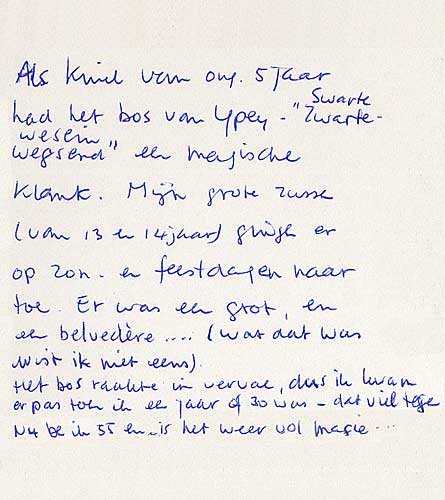 Als kind van ong. 5 jaar
had het bos van Ypey - "Swarte
Zwarte-
wesein
wegsend" een magische
klank. Mijn grote zusse
(van 13 en 14 jaar) gingen er
op zon- en feestdagen naar
toe. Er was een grot, en
een belvedère .... (wat dat was
wist ik niet eens).
Het bos raakte in verval, dus ik kwam
er pas toen ik een jaar of 30 was - dat viel tege
Nu ben ik 55 en .. is het weer vol magie ...